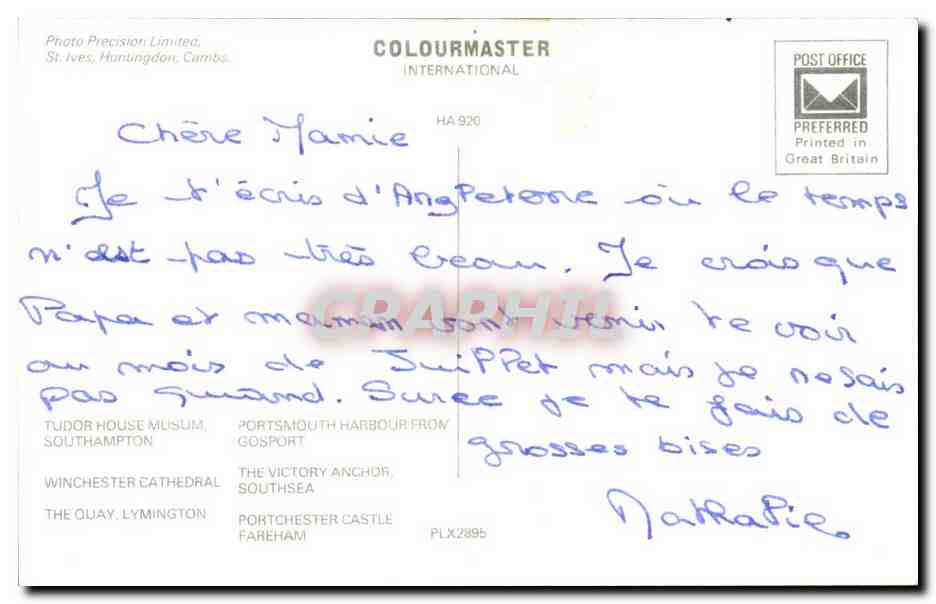 Photo Precision Limited,
St. Ives, Huntingdon, Cambs.
COLOURMASTER
INTERNATIONAL
POST OFFICE
PREFERRED
Printed in
Great Britain
HA 920
Chère Mamie
Je t'écris d'Angleterre où le temps
n'est pas très beau. Je crois que
Papa et maman vont venir te voir
au mois de Juillet mais je ne sais
pas quand. Surce je te fais de
grosses bises
Nathalie
GRAPHIL
TUDOR HOUSE MUSUM,
SOUTHAMPTON
WINCHESTER CATHEDRAL
THE QUAY, LYMINGTON
PORTSMOUTH HARBOUR FROM
GOSPORT
THE VICTORY ANCHOR,
SOUTHSEA
PORTCHESTER CASTLE
FAREHAM
PLX2895